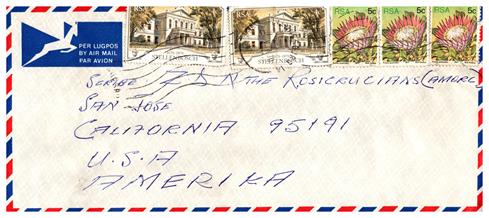 PER LUGPOS
BY AIR MAIL
PAR AVION
STELLENBOSCH
STELLENBOSCH
RSA 5c
RSA 5c
RSA 5c
THE ROSICRUCIANS (AMORC)
SAN JOSE
CALIFORNIA 95191
U.S.A
AMERIKA